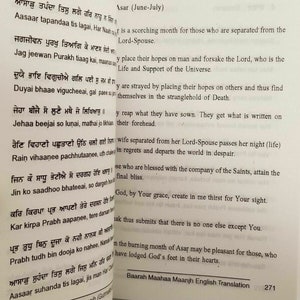 ਆਸਾੜੁ ਤਪੰਦਾ ਤਿਸੁ ਲਗੈ ਹਰਿ
Aasaar tapandaa tis lagai, Har
ਜਗਜੀਵਨ ਪੁਰਖੁ ਤਿਆਗਿ ਕੈ ਮਾਣਸ
Jag jeevan Purakh tiaag kai, maanas
ਦੁਯੈ ਭਾਇ ਵਿਗੁਚੀਐ ਗਲਿ ਪਈ ਸੁ
Duyai bhaae vigucheeai, gal paee
ਜੇਹਾ ਬੀਜੈ ਸੋ ਲੁਣੈ ਮਥੈ ਜੋ ਲਿਖਿਆਸੁ
Jehaa beejai so lunai, mathai jo likhaas
ਰੈਣਿ ਵਿਹਾਣੀ ਪਛੁਤਾਣੀ ਉਠਿ ਚਲੀ ਗਈ
Rain vihaanee pachhutaanee, uth chalee gaee
ਜਿਨ ਕੌ ਸਾਧੂ ਭੇਟੀਐ ਸੋ ਦਰਗਹ ਹੋਇ
Jin ko saadhoo bhateeai, so dargeh hoe
ਕਰਿ ਕਿਰਪਾ ਪ੍ਰਭ ਆਪਣੀ ਤੇਰੇ ਦਰਸਨ
Kar kirpa Prabh aapanee, tere darsan
ਪ੍ਰਭ ਤੁਧੁ ਬਿਨੁ ਦੂਜਾ ਕੋ ਨਹੀ ਨਾਨਕ ਕੀ
Prabh tudh bin dooja ko nahee, Nanak
ਆਸਾੜੁ ਸੁਹੰਦਾ ਤਿਸੁ ਲਗੈ ਜਿਸੁ ਮਨਿ ਹਰਿ
Aasaar suhanda tis lagai, jis man Har
Asar (June-July)
is a scorching month for those who are separated from
Lord-Spouse.
place their hopes on man and forsake the Lord, who is the
Life and Support of the Universe
are strayed by placing their hopes on others and thus find
themselves in the stranglehold of Death.
reap what they have sown. They get what is written on
their forehead.
wife separated from her Lord-Spouse passes her night (life)
in regrets and departs the world in despair.
who are blessed with the company of the Saints, attain the
final bliss.
God, by Your grace, create in me thirst for Your sight.
thus submits that there is no one else except You.
the burning month of Asar may be pleasant for those, who
have lodged God's feet in their hearts.
Baarah Maahaa Maanjh English Translation
271